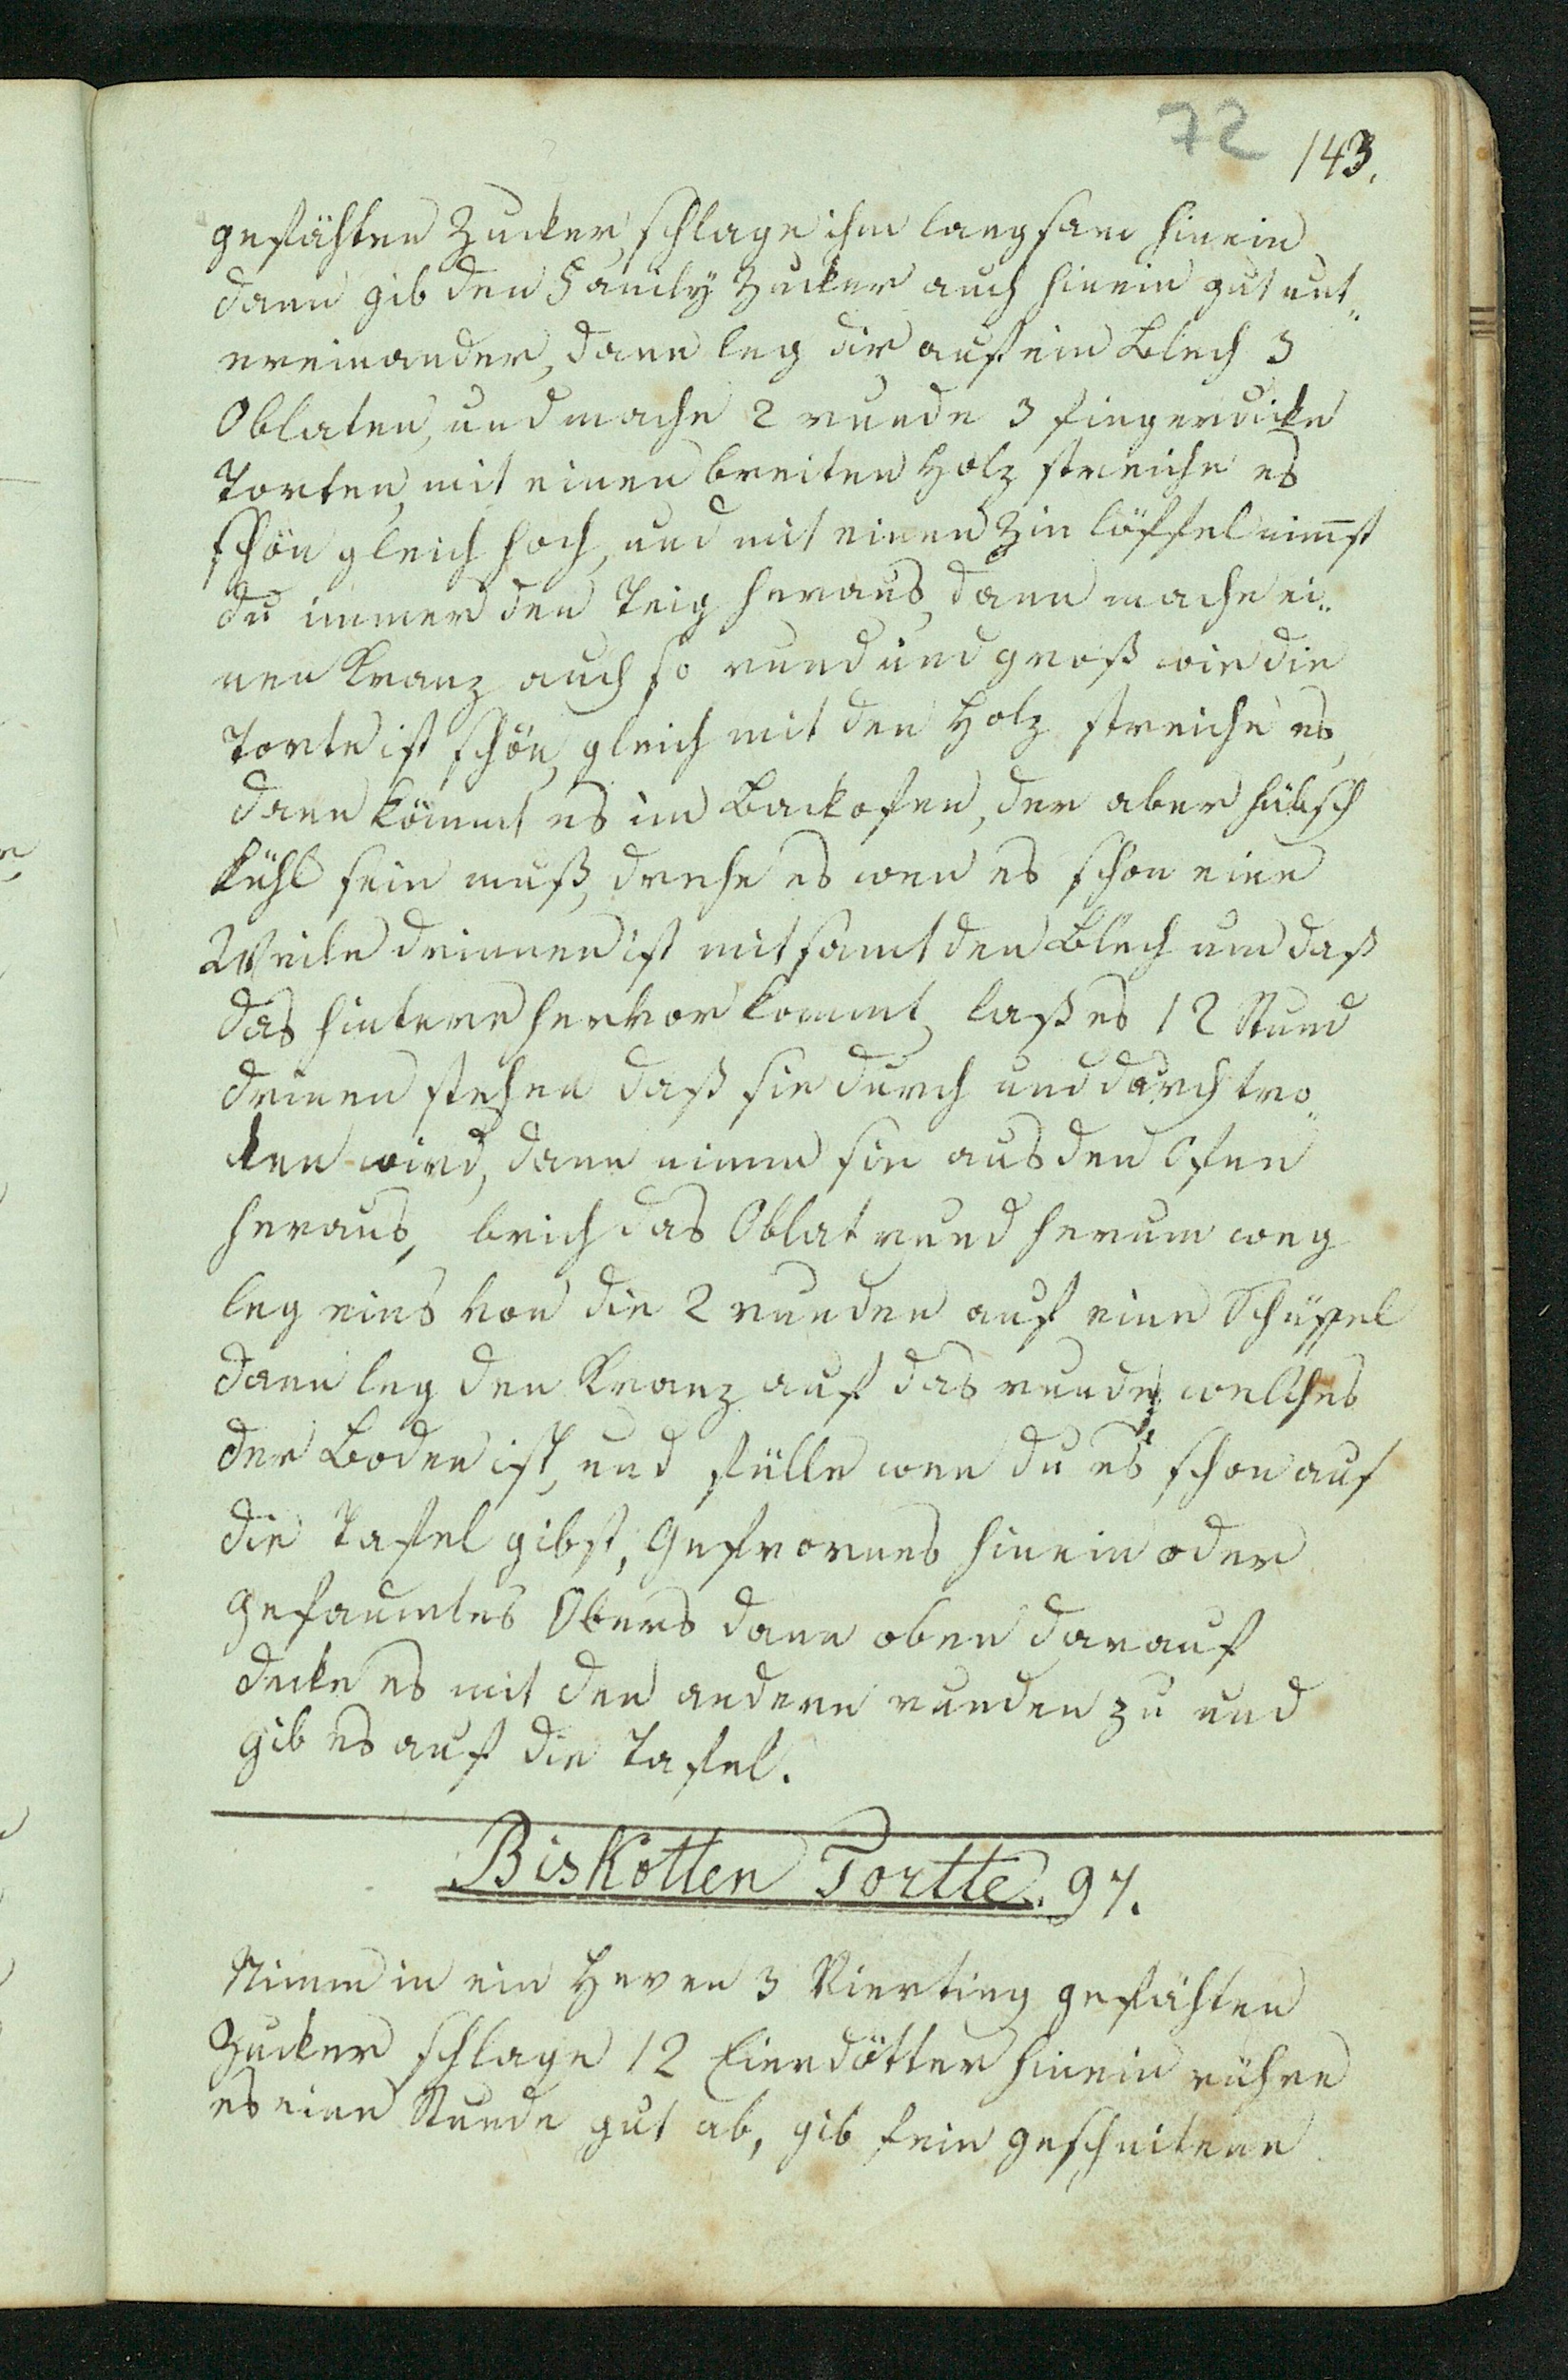 72
143.
gefähten Zucker, schlage ihm langsam hinein
dann gib den Zucker auch hinein gut unt„
ereinander, dann leg dir auf ein Blech 3
Oblaten, und mache 2 runde 3 fingerdicke
Torten, mit einen breiten Holz streiche es
schön gleich hoch, und mit einen Zin löffel nim̅st
du immer den Teig heraus, dann mache ei„
nen Kranz auch so rund und groß wie die
Torte ist schön, gleich mit den Holz streiche es,
dann kömmt es im Backofen, der aber hübsch
kühl sein muß, drehe es wen es schon eine
Weile drinnen ist mit samt den Blech um daß
das hintere hervor kommt, laß es 12 Stund
drinen stehen daß sie durch und durch tro„
ken wird, dann nimm sie aus den Ofen
heraus, brich das Oblat rund herum weg
leg eins von die 2 runden auf eine Schüssel
dann leg den Kranz auf das runde, welches
der Boden ist, und fülle wen du es schon auf
die Tafel gibst, Gefrornes hinein oder
gefaumtes Obers dann oben darauf
decke es mit den andern runden zu und
gib es auf die Tafel.
Biskotten Tortte. 97.
Nimm in ein Heven 3 Vierting gefähten
Zucker schlage 12 Eierdötter hinein rühre
es eine Stunde gut ab, gib fein geschnitene